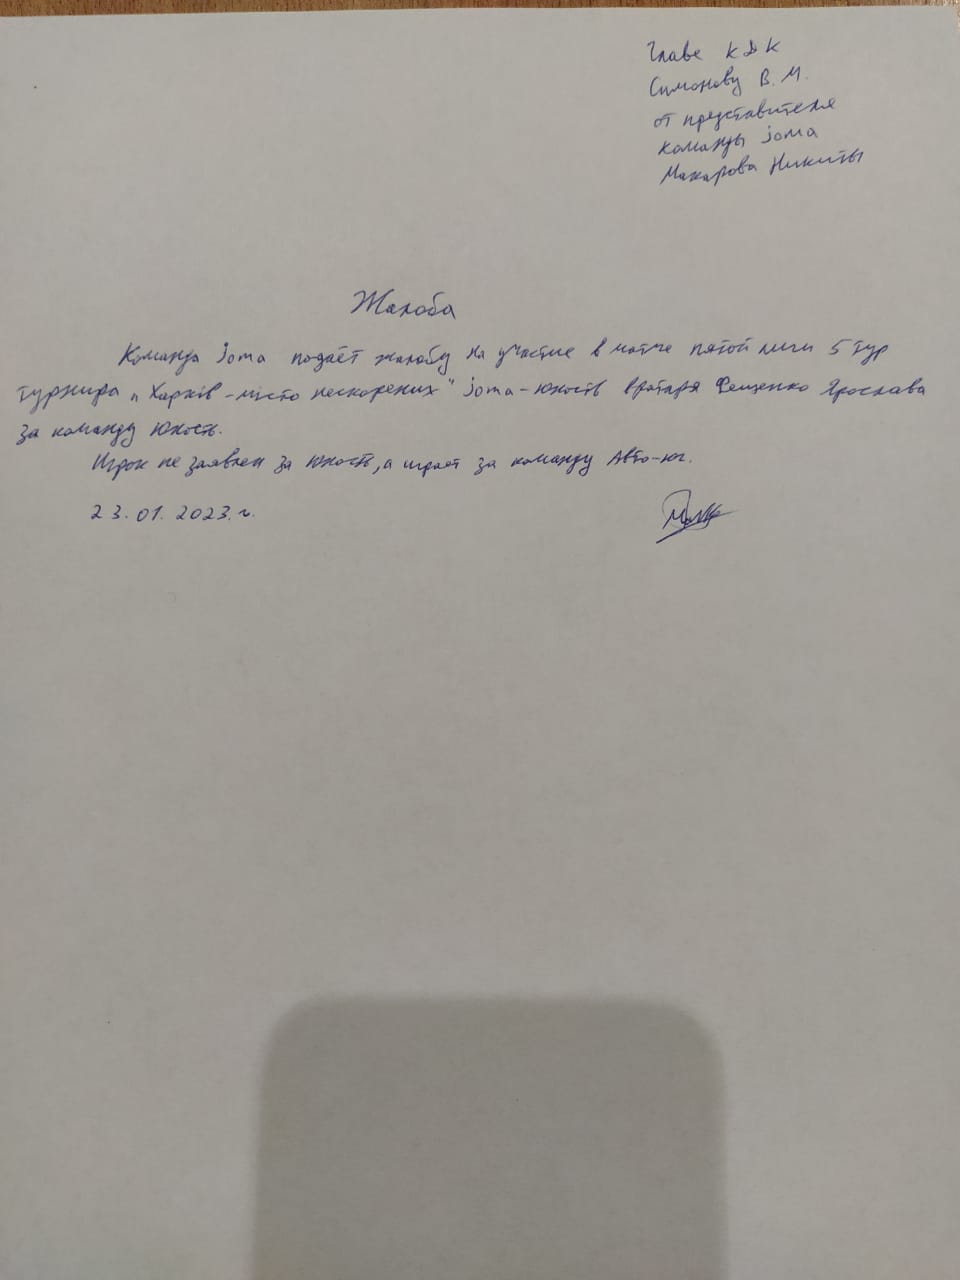 Главе КДК
Симонову В.М.
от представителя
команды joma
Макарова Никиты
Жалоба
Команда Joma подаёт жалобу на участие в матче пятой лиги 5 тур
турнира „Харків-місто нескорених" joma-юность вратаря Фещенко Ярослава
за команду Юность.
Игрок не заявлен за Юность, а играет за команду Авто-юг.
23.01.2023.г.